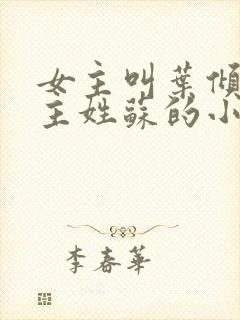 女主叫葉傾
主姓蘇的小
李春華